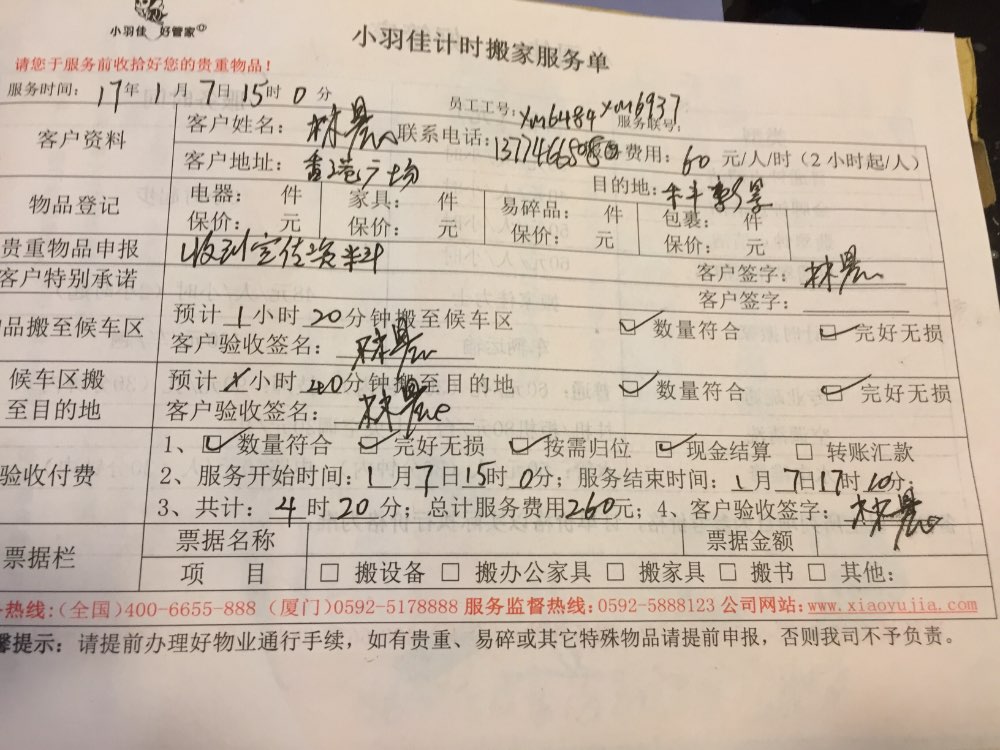 小羽佳 好管家
小羽佳计时搬家服务单
请您于服务前收拾好您的贵重物品！
服务时间： 17年 1月 7日 15时 0分 员工工号：XM6484 XM6937
服务联号：
客户资料 客户姓名： 林晨 联系电话： 费用：60元/人/时（2小时起/人）
客户地址： 广场 目的地： 禾丰新景
物品登记 电器： 件 家具： 件 易碎品： 件 包裹： 件
保价： 元 保价： 元 保价： 元 保价： 元
贵重物品申报 收到 客户签字：林晨
客户特别承诺 客户签字：
品搬至候车区 预计 1小时 20分钟搬至候车区 ☑ 数量符合 ☑ 完好无损
客户验收签名： 林晨
候车区搬 预计 小时 40分钟搬至目的地 ☑ 数量符合 ☑ 完好无损
至目的地 客户验收签名： 林晨
验收付费 1、☑ 数量符合 ☑ 完好无损 ☑ 按需归位 ☑ 现金结算 □ 转账汇款
2、服务开始时间：1月 7日15时 0分；服务结束时间：1月 7日17时10分；
3、共计： 4时 20分；总计服务费用260元；4、客户验收签字：林晨
票据栏 票据名称 票据金额
项 目 □ 搬设备 □ 搬办公家具 □ 搬家具 □ 搬书 □ 其他：
务热线：(全国)400-6655-888 (厦门)0592-5178888 服务监督热线：0592-5888123 公司网站：www.xiaoyujia.com
馨提示：请提前办理好物业通行手续，如有贵重、易碎或其它特殊物品请提前申报，否则我司不予负责。